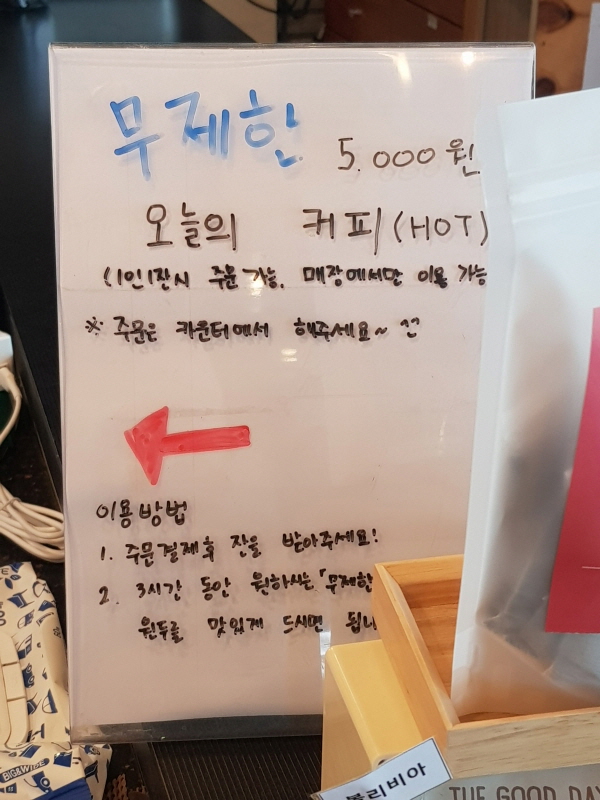 무제한
5.000원
오늘의 커피 (HOT)
(1인1잔시 주문 가능. 매장에서만 이용 가능
※ 주문은 카운터에서 해주세요~ ^^
이용방법
1. 주문결제후 잔을 받아주세요!
2. 3시간 동안 원하시는 「무제한
원두를 맛있게 드시면 됩니
BIG&WIDE
볼리비아
THE GOOD DAY